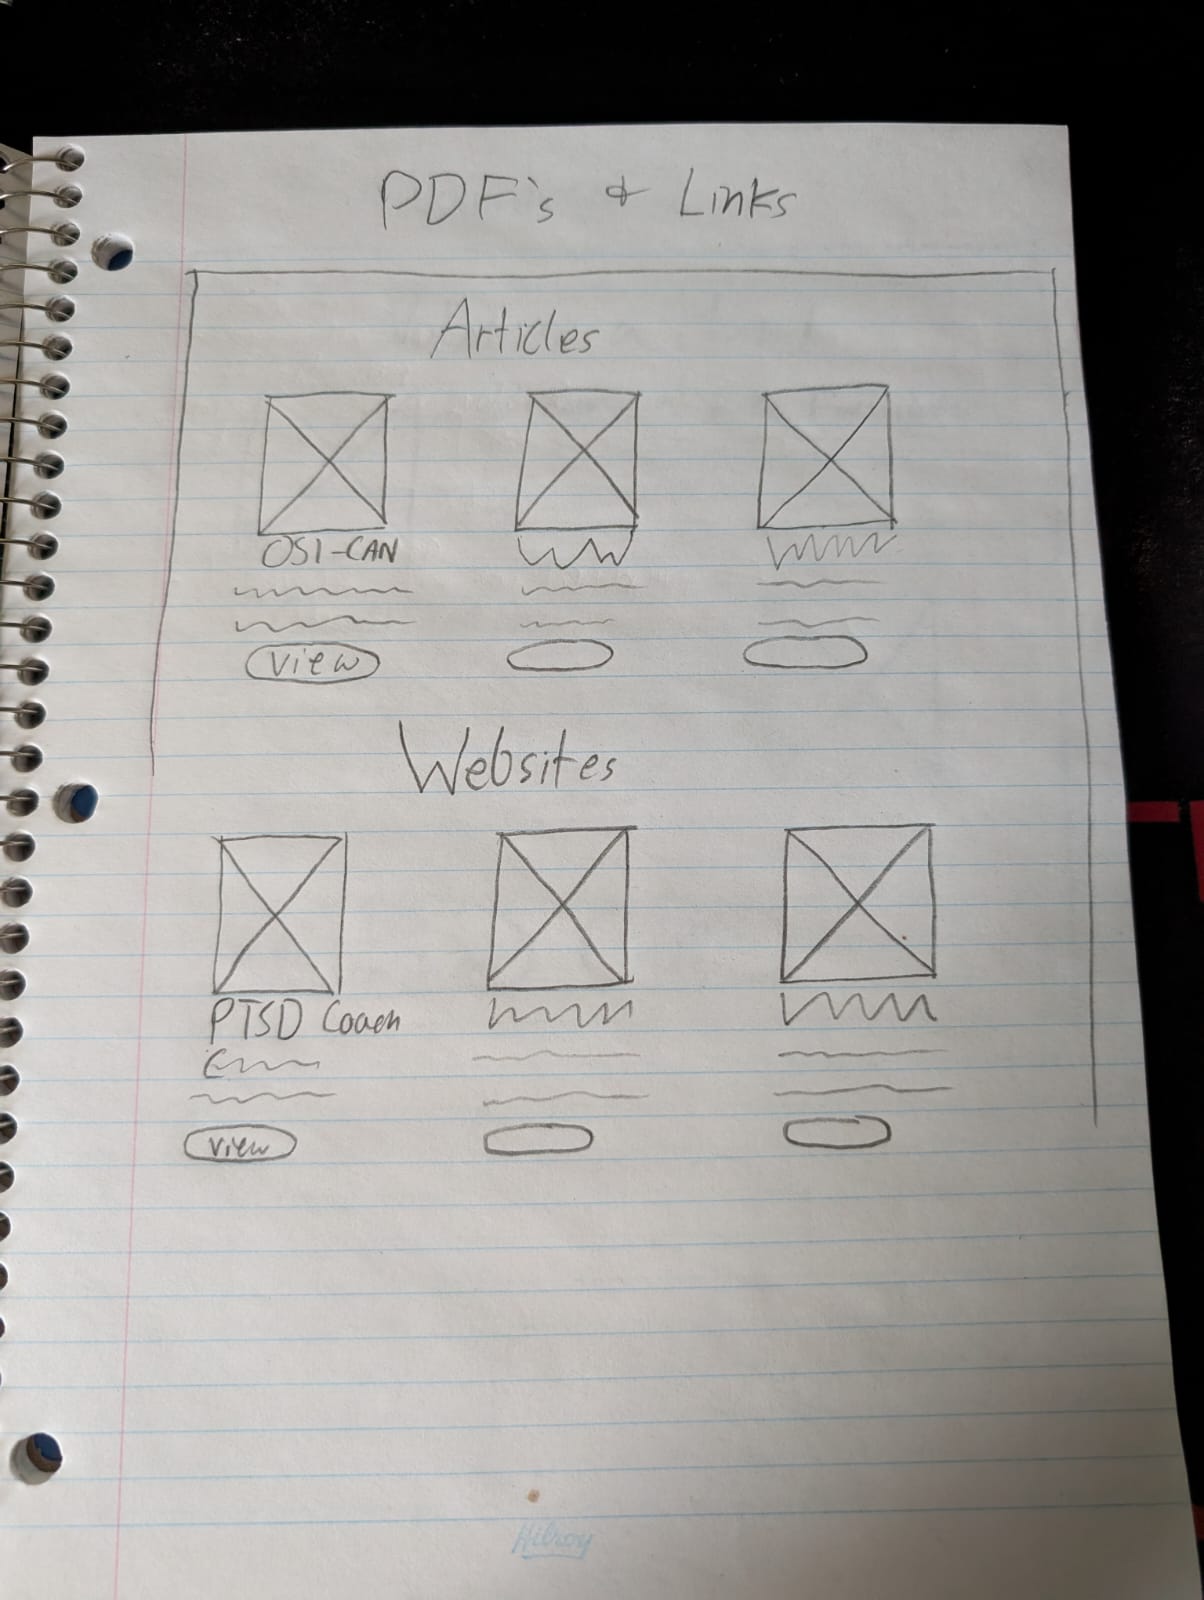 PDF's & Links
Articles
OSI-CAN
View
Websites
PTSD Coach
View
Hilroy